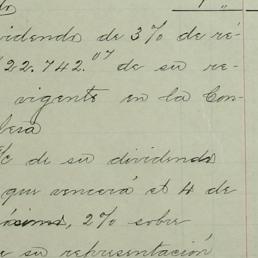 videndo de 3% de ré-
22.742.07 de su re-
vigente en la Con-
c de su dividendo
que vencerá el 4 de
óximo, 2% sobre
e su representación